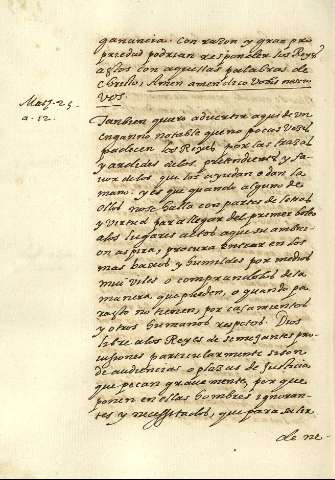 ganancia. con razon y gran pro
priedad podrian responder los Reyes
a estos con aquellas palabras de
Christo, Amen amen dico vobis nescio
vos
Matt. 25.
a. 12.
Tambien quiero advertir aqui de un
engaño notable que no pocas vezes
padecen los Reyes por las trazas
y ardides de los pretendientes y fa
vor de los que los ayudan o dan la
mano. y es que quando alguno de
ellos no se halla con partes de letras
y virtud para llegar del primer boleo
a los lugares altos a que su ambici
on aspira, procura entrar en los
mas baxos y humildes por medios
mui viles o comprandolos de la
manera que pueden, o quando pa
ra esto no tienen, por casamientos
y otros humanos respetos. Dios
libre a los Reyes de semejantes pro
visiones particularmente si son
de audiencias o plazas de Justicia
que pecan gravemente, por que
ponen en ellas hombres ignoran
tes y necessitados, que para salir
de ne-